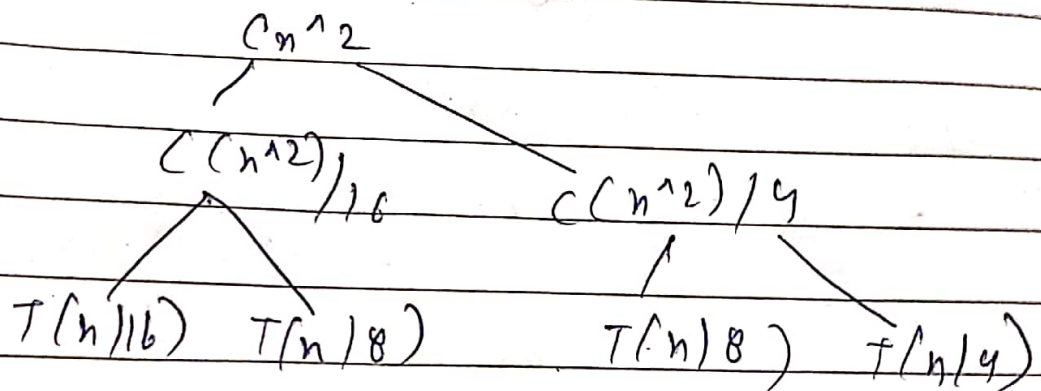 Cn^2
C(n^2)/16 C(n^2)/4
T(n/16) T(n/8) T(n/8) T(n/4)